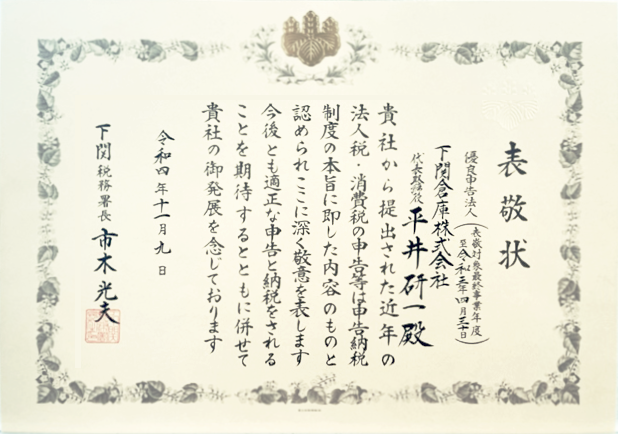 表敬状
優良申告法人（表敬対象最終事業年度
至令和三年四月三十日）
下関倉庫株式会社
代表取締役 平井研一殿
貴社から提出された近年の
法人税・消費税の申告等は申告納税
制度の本旨に即した内容のものと
認められここに深く敬意を表します
今後とも適正な申告と納税をされる
ことを期待するとともに併せて
貴社の御発展を念じております
令和四年十一月九日
下関税務署長 市木光夫